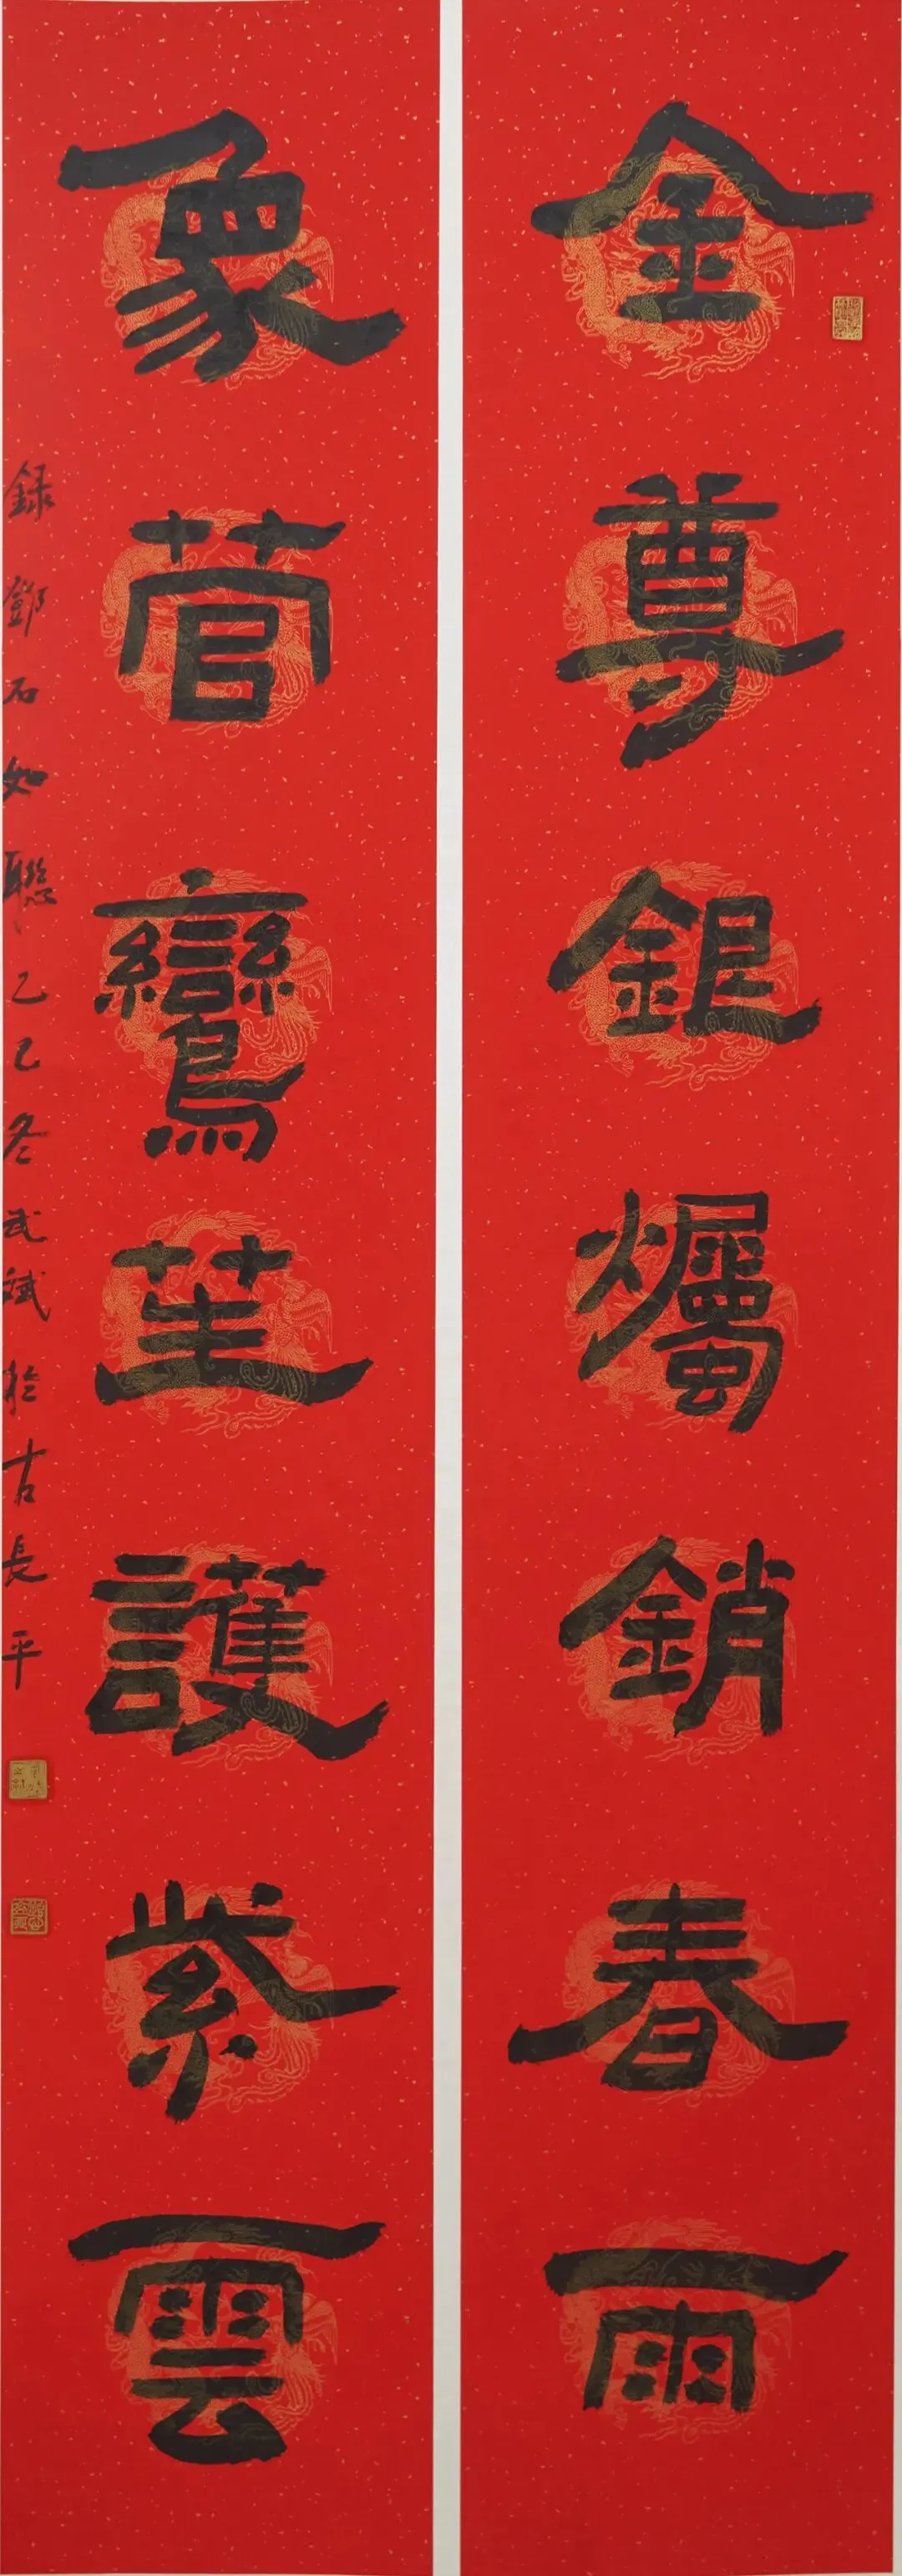 金尊銀爥銷春雨
象菅鸞茟護紫雲
録鄧石如聯乙巳冬武斌於古長平